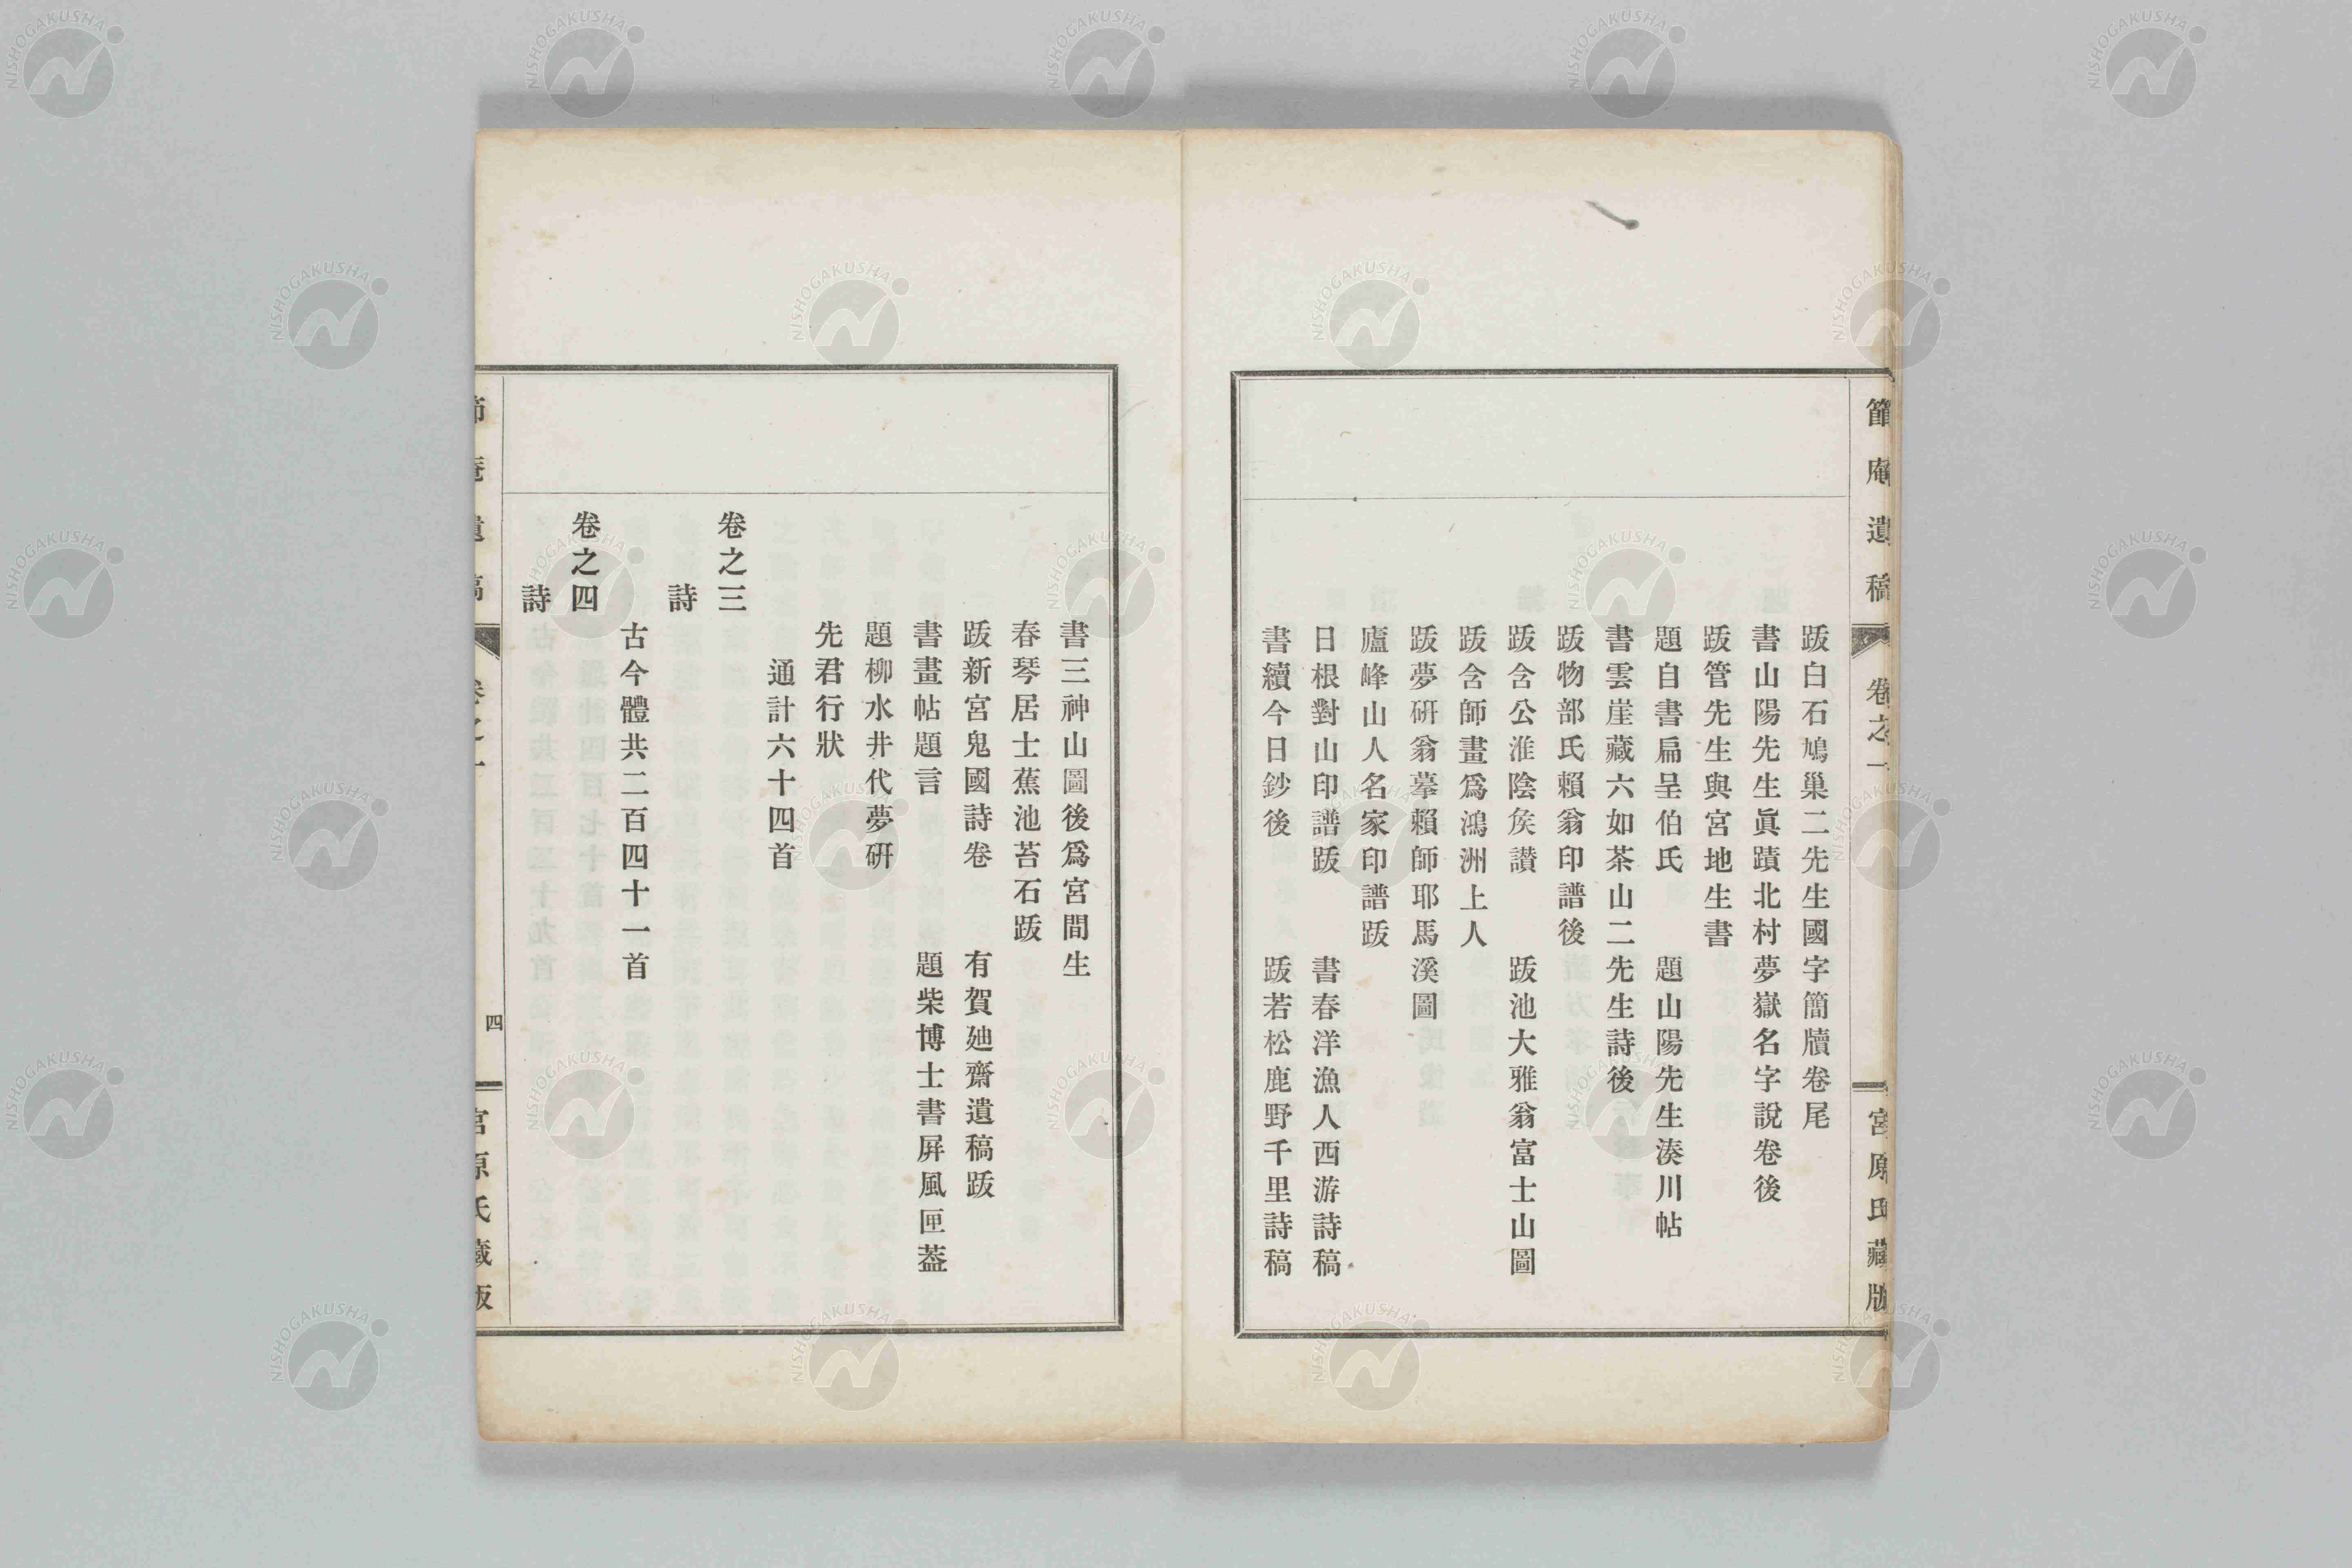 節庵遺稿 卷之一 宮原氏藏版
跋白石鳩巢二先生國字簡牘卷尾
書山陽先生眞蹟北村夢嶽名字說卷後
跋管先生與宮地生書
題自書扁呈伯氏 題山陽先生湊川帖
書雲崖藏六如茶山二先生詩後
跋物部氏賴翁印譜後
跋含公淮陰矦讚 跋池大雅翁富士山圖
跋含師畫爲鴻洲上人
跋夢硏翁摹賴師耶馬溪圖
廬峰山人名家印譜跋
日根對山印譜跋 書春洋漁人西游詩稿
書續今日鈔後 跋若松鹿野千里詩稿
書三神山圖後爲宮間生
春琴居士蕉池苔石跋
跋新宮鬼國詩卷 有賀廸齋遺稿跋
書畫帖題言 題柴博士書屛風匣葢
題柳水井代夢硏
先君行狀
通計六十四首
卷之三
詩
古今體共二百四十一首
卷之四
詩
節庵遺稿 卷之一 四 宮原氏藏版
NISHOGAKUSHA